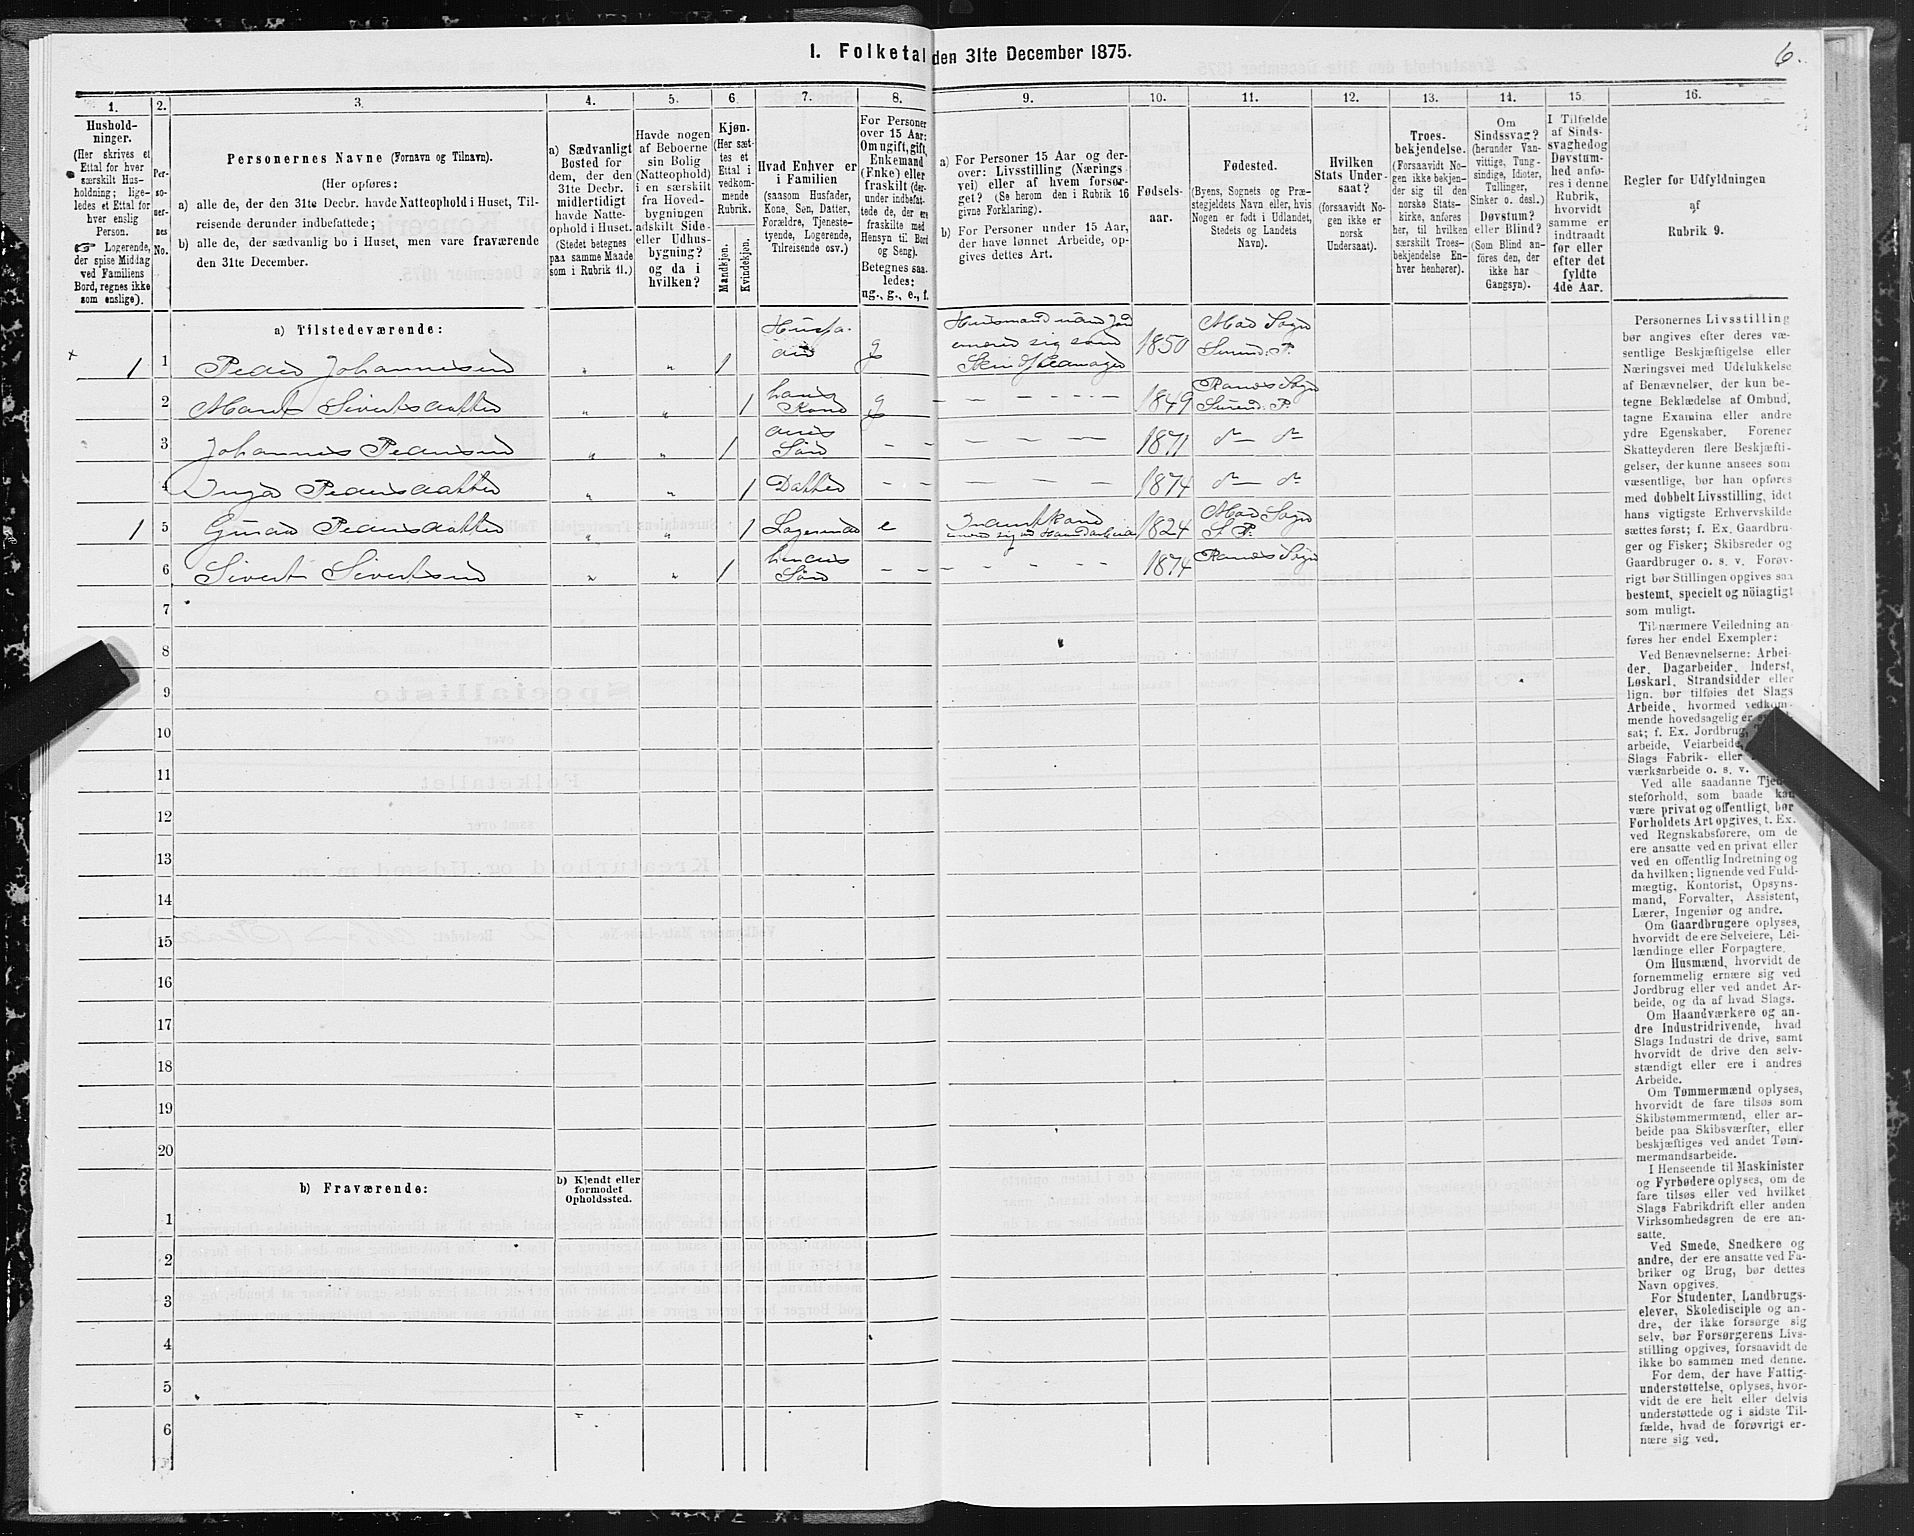 I. Folketal den 31te December 1875.
6.
1.
Hushold-
ninger.
(Her skrives et
Ettal for hver
særskilt Hus-
holdning; lige-
ledes et Ettal for
hver enslig
Person.
☞ Logerende,
der spise Middag
ved Familiens
Bord, regnes ikke
som enslige).
2.
Per-
so-
ner-
nes
No.
3.
Personernes Navne (Fornavn og Tilnavn).
(Her opføres:
a) alle de, der den 31te Decbr. havde Natteophold i Huset, Til-
reisende derunder indbefattede;
b) alle de, der sædvanlig bo i Huset, men vare fraværende
den 31te December.
4.
a) Sædvanligt
Bosted for
dem, der den
31te Decbr.
midlertidigt
havde Natte-
ophold i Huset.
(Stedet betegnes
paa samme Maade
som i Rubrik 11.)
5.
Havde nogen
af Beboerne
sin Bolig
(Natteophold)
i en særskilt
fra Hoved-
bygningen
adskilt Side-
eller Udhus-
bygning?
og da i
hvilken?
6.
Kjøn.
(Her sæt-
tes et
Ettal i
vedkom-
mende
Rubrik.
Mandkjøn.
Kvindekjøn.
7.
Hvad Enhver er
i Familien
(saasom Husfader,
Kone, Søn, Datter,
Forældre, Tjeneste-
tyende, Logerende,
Tilreisende osv.)
8.
For Personer
over 15 Aar:
Om ugift, gift,
Enkemand
(Enke) eller
fraskilt (der-
under indbefat-
tede de, der ere
fraskilte med
Hensyn til Bord
og Seng).
Betegnes saa-
ledes:
ug., g., e., f.
9.
a) For Personer 15 Aar og der-
over: Livsstilling (Nærings-
vei) eller af hvem forsør-
get? (Se herom den i Rubrik 16
givne Forklaring).
b) For Personer under 15 Aar,
der have lønnet Arbeide, op-
gives dettes Art.
10.
Fødsels-
aar.
11.
Fødested.
(Byens, Sognets og Præ-
stegjeldets Navn eller, hvis
Nogen er født i Udlandet,
Stedets og Landets
Navn).
12.
Hvilken
Stats Under-
saat?
(forsaavidt No-
gen ikke er
norsk
Undersaat).
13.
Troes-
bekjendelse.
(Forsaavidt No-
gen ikke bekjen-
der sig til den
norske Stats-
kirke, anføres
her, til hvilken
særskilt Troes-
bekjendelse En-
hver henhører).
14.
Om
Sindssvag?
(herunder Van-
vittige, Tung-
sindige, Idioter,
Tullinger,
Sinker o. desl.)
Døvstum?
eller Blind?
(Som Blind an-
føres den, der
ikke har
Gangsyn).
15.
I Tilfælde
af Sinds-
svaghed og
Døvstum-
hed anfø-
res i denne
Rubrik,
hvorvidt
samme er
indtraadt
før eller
efter det
fyldte
4de Aar.
16.
Regler for Udfyldningen
af
Rubrik 9.
a) Tilstedeværende:
1 1 Peder Johannesen „ „ 1 Husfa- g 1850 Moe Sogn
Surend. P.
2 Marit Sivertsdatter „ „ 1 hans Kone g 1849 Ranes Sogn
Surend. P.
3 Johannes Pedersen „ „ 1 Søn 1871
4 Pedersdatter „ „ 1 Datter 1874
1 5 Pedersdatter „ „ 1 e 1824 Moe Sogn
S. P.
6 Sivert Sivertsen „ „ 1 Søn 1874 Ranes Sogn
7
8
9
10
11
12
13
14
15
16
17
18
19
20
b) Fraværende:
b) Kjendt eller
formodet
Opholdssted.
1
2
3
4
5
6
Personernes Livsstilling
bør angives efter deres væ-
sentlige Beskjæftigelse eller
Næringsvei med Udelukkelse
af Benævnelser, der kun be-
tegne Beklædelse af Ombud,
tagne Examina eller andre
ydre Egenskaber. Forener
Skatteyderen flere Beskjæfti-
gelser, der kunne ansees som
væsentlige, bør han opføres
med dobbelt Livsstilling, idet
hans vigtigste Erhvervskilde
sættes først; f. Ex. Gaardbru-
ger og Fisker; Skibsreder og
Gaardbruger o. s. v. Forøv-
rigt bør Stillingen opgives saa
bestemt, specielt og nöiagtigt
som muligt.
Til nærmere Veiledning an-
føres her endel Exempler:
Ved Benævnelserne: Arbei-
der, Dagarbeider, Inderst,
Løskarl, Strandsidder eller
lign. bør tilføies det Slags
Arbeide, hvormed vedkom-
mende hovedsagelig er
sat; f. Ex. Jordbrug,
arbeide, Veiarbeide,
Slags Fabrik- eller
værksarbeide o. s. v.
Ved alle saadanne Tjene-
steforhold, som baade kan
være privat og offentligt, bør
Forholdets Art opgives, t. Ex.
ved Regnskabsførere, om de
ere ansatte ved en privat eller
ved en offentlig Indretning og
da hvilken; lignende ved Fuld-
mægtig, Kontorist, Opsyns-
mand, Forvalter, Assistent,
Lærer, Ingeniør og andre.
Om Gaardbrugere oplyses,
hvorvidt de ere Selveiere, Lei-
lændinge eller Forpagtere.
Om Husmænd, hvorvidt de
fornemmelig ernære sig ved
Jordbrug eller ved andet Ar-
beide, og da af hvad Slags.
Om Haandværkere og an-
dre Industridrivende, hvad
Slags Industri de drive, samt
hvorvidt de drive den selv-
stændigt eller ere i andres
Arbeide.
Om Tømmermænd oplyses,
hvorvidt de fare tilsøs som
Skibstømmermænd, eller ar-
beide paa Skibsværfter, eller
beskjæftiges ved andet Tøm-
mermandsarbeide.
I Henseende til Maskinister
og Fyrbødere oplyses, om de
fare tilsøs eller ved hvilket
Slags Fabrikdrift eller anden
Virksomhedsgren de ere an-
satte.
Ved Smede, Snedkere og
andre, der ere ansatte ved Fa-
briker og Brug, bør dettes
Navn opgives.
For Studenter, Landbrugs-
elever, Skoledisciple og an-
dre, der ikke forsørge sig
selv, bør Forsørgerens Livs-
stilling opgives, forsaavidt de
ikke bo sammen med denne.
For dem, der have Fattig-
understøttelse, oplyses, hvor-
vidt de ere helt eller delvis
understøttede og i sidste Til-
fælde, hvad de forøvrigt er-
nære sig ved.